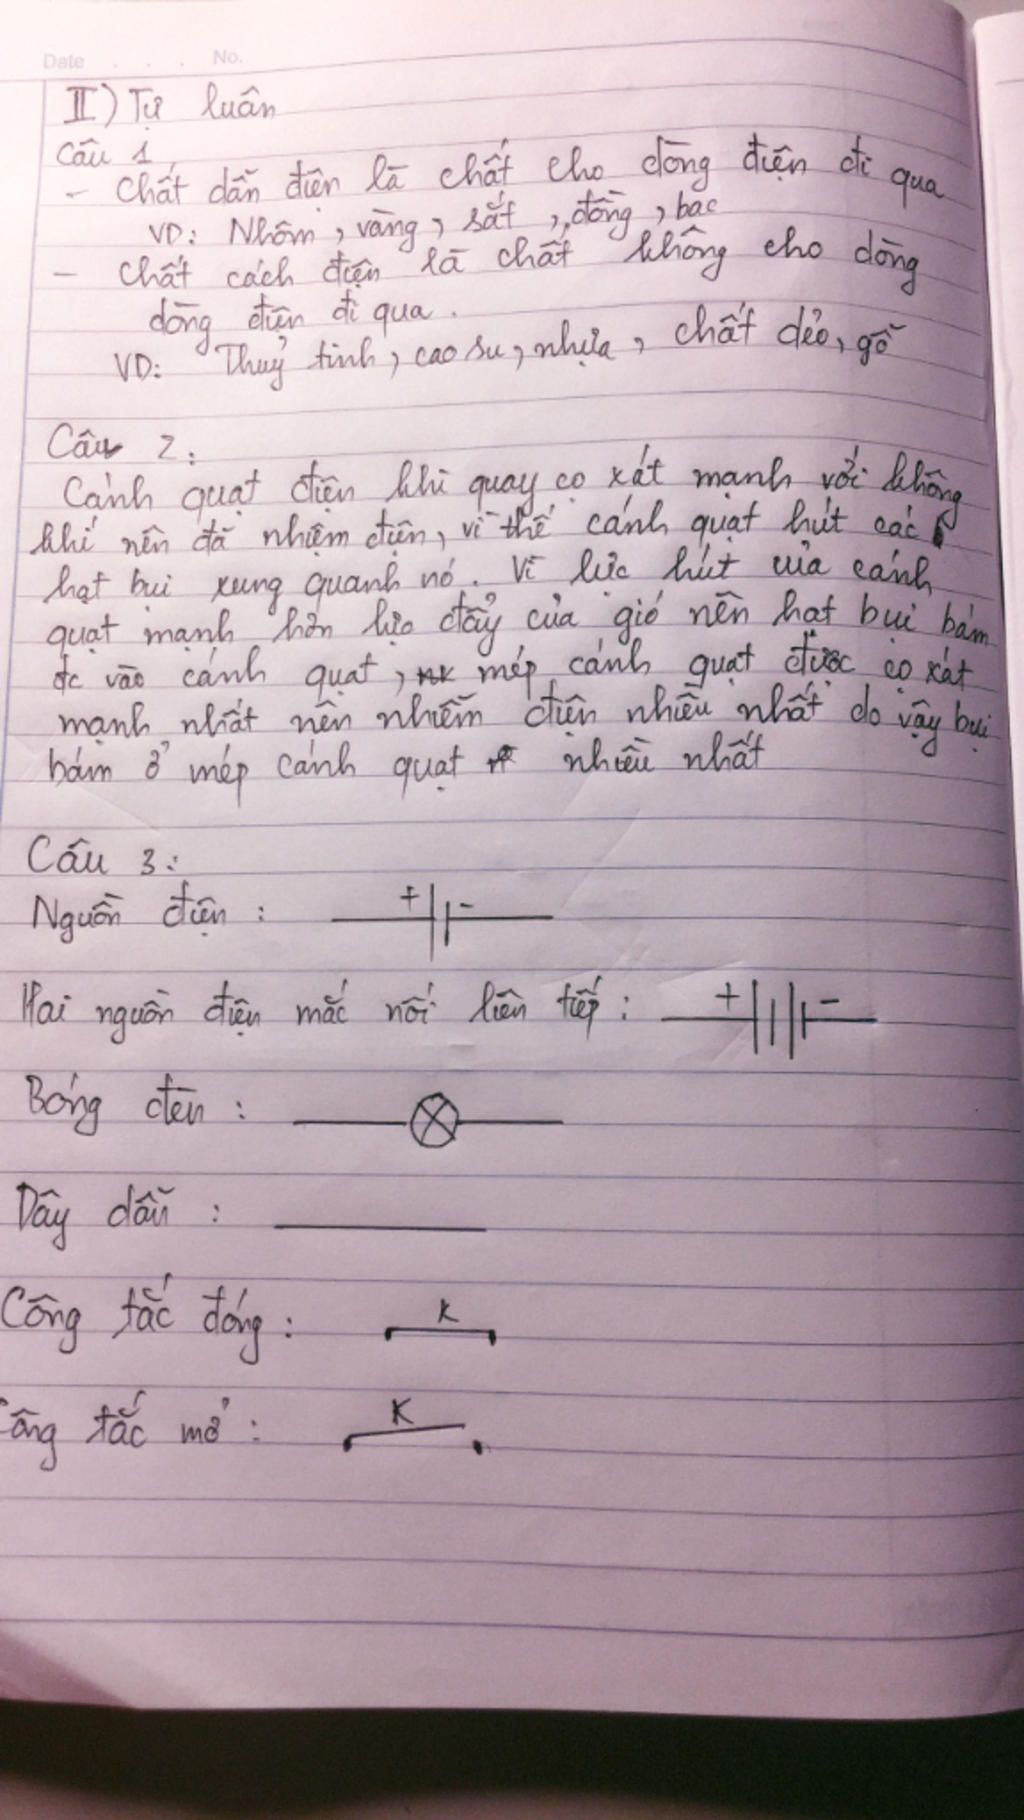 Date . . . No.
II) Tự luân
Câu 1
- Chất dẫn điện là chất cho dòng điện đi qua
VD: Nhôm, vàng, sắt, đồng, bac
- Chất cách điện là chất không cho dòng
dòng điện đi qua.
VD: Thuỷ tinh, cao su, nhựa, chất dẻo, gỗ
Câu 2:
Cánh quạt điện khi quay cọ xát mạnh với không
khí nên đã nhiệm điện, vì thế cánh quạt hút các
hạt bụi xung quanh nó. Vì lực hút của cánh
quạt mạnh hơn lực đẩy của gió nên hạt bụi bám
đc vào cánh quạt, mép cánh quạt được cọ xát
mạnh nhất nên nhiễm điện nhiều nhất do vậy bụi
bám ở mép cánh quạt nhiều nhất
Câu 3:
Nguồn điện : + -
Hai nguồn điện mắc nối liên tiếp : + -
Bóng đèn :
Dây dẫn :
Công tắc đóng : K
Công tắc mở : K